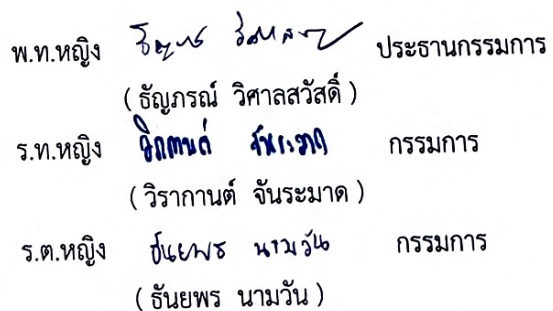 พ.ท.หญิง ประธานกรรมการ
( ธัญภรณ์ วิศาลสวัสดิ์ )
ร.ท.หญิง วิรากานต์ จันระมาด กรรมการ
( วิรากานต์ จันระมาด )
ร.ต.หญิง ธันยพร นามวัน กรรมการ
( ธันยพร นามวัน )